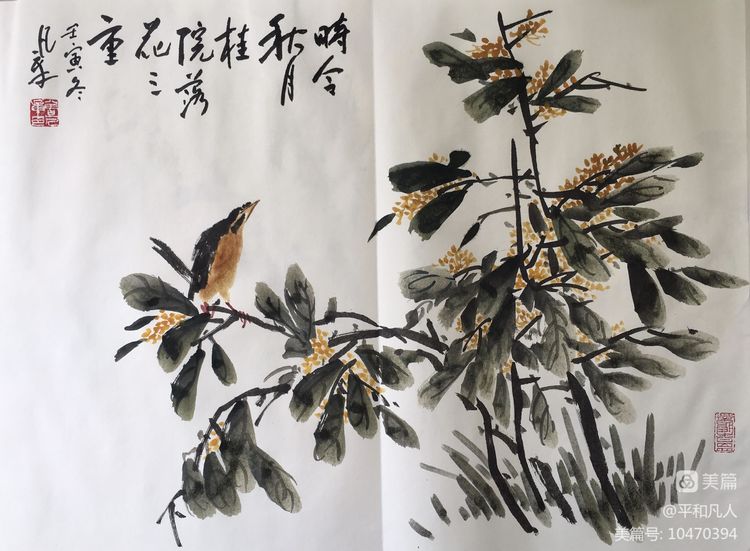 時令
秋月
桂
院落
花三
重
壬寅冬
美篇
@平和凡人
美篇号: 10470394